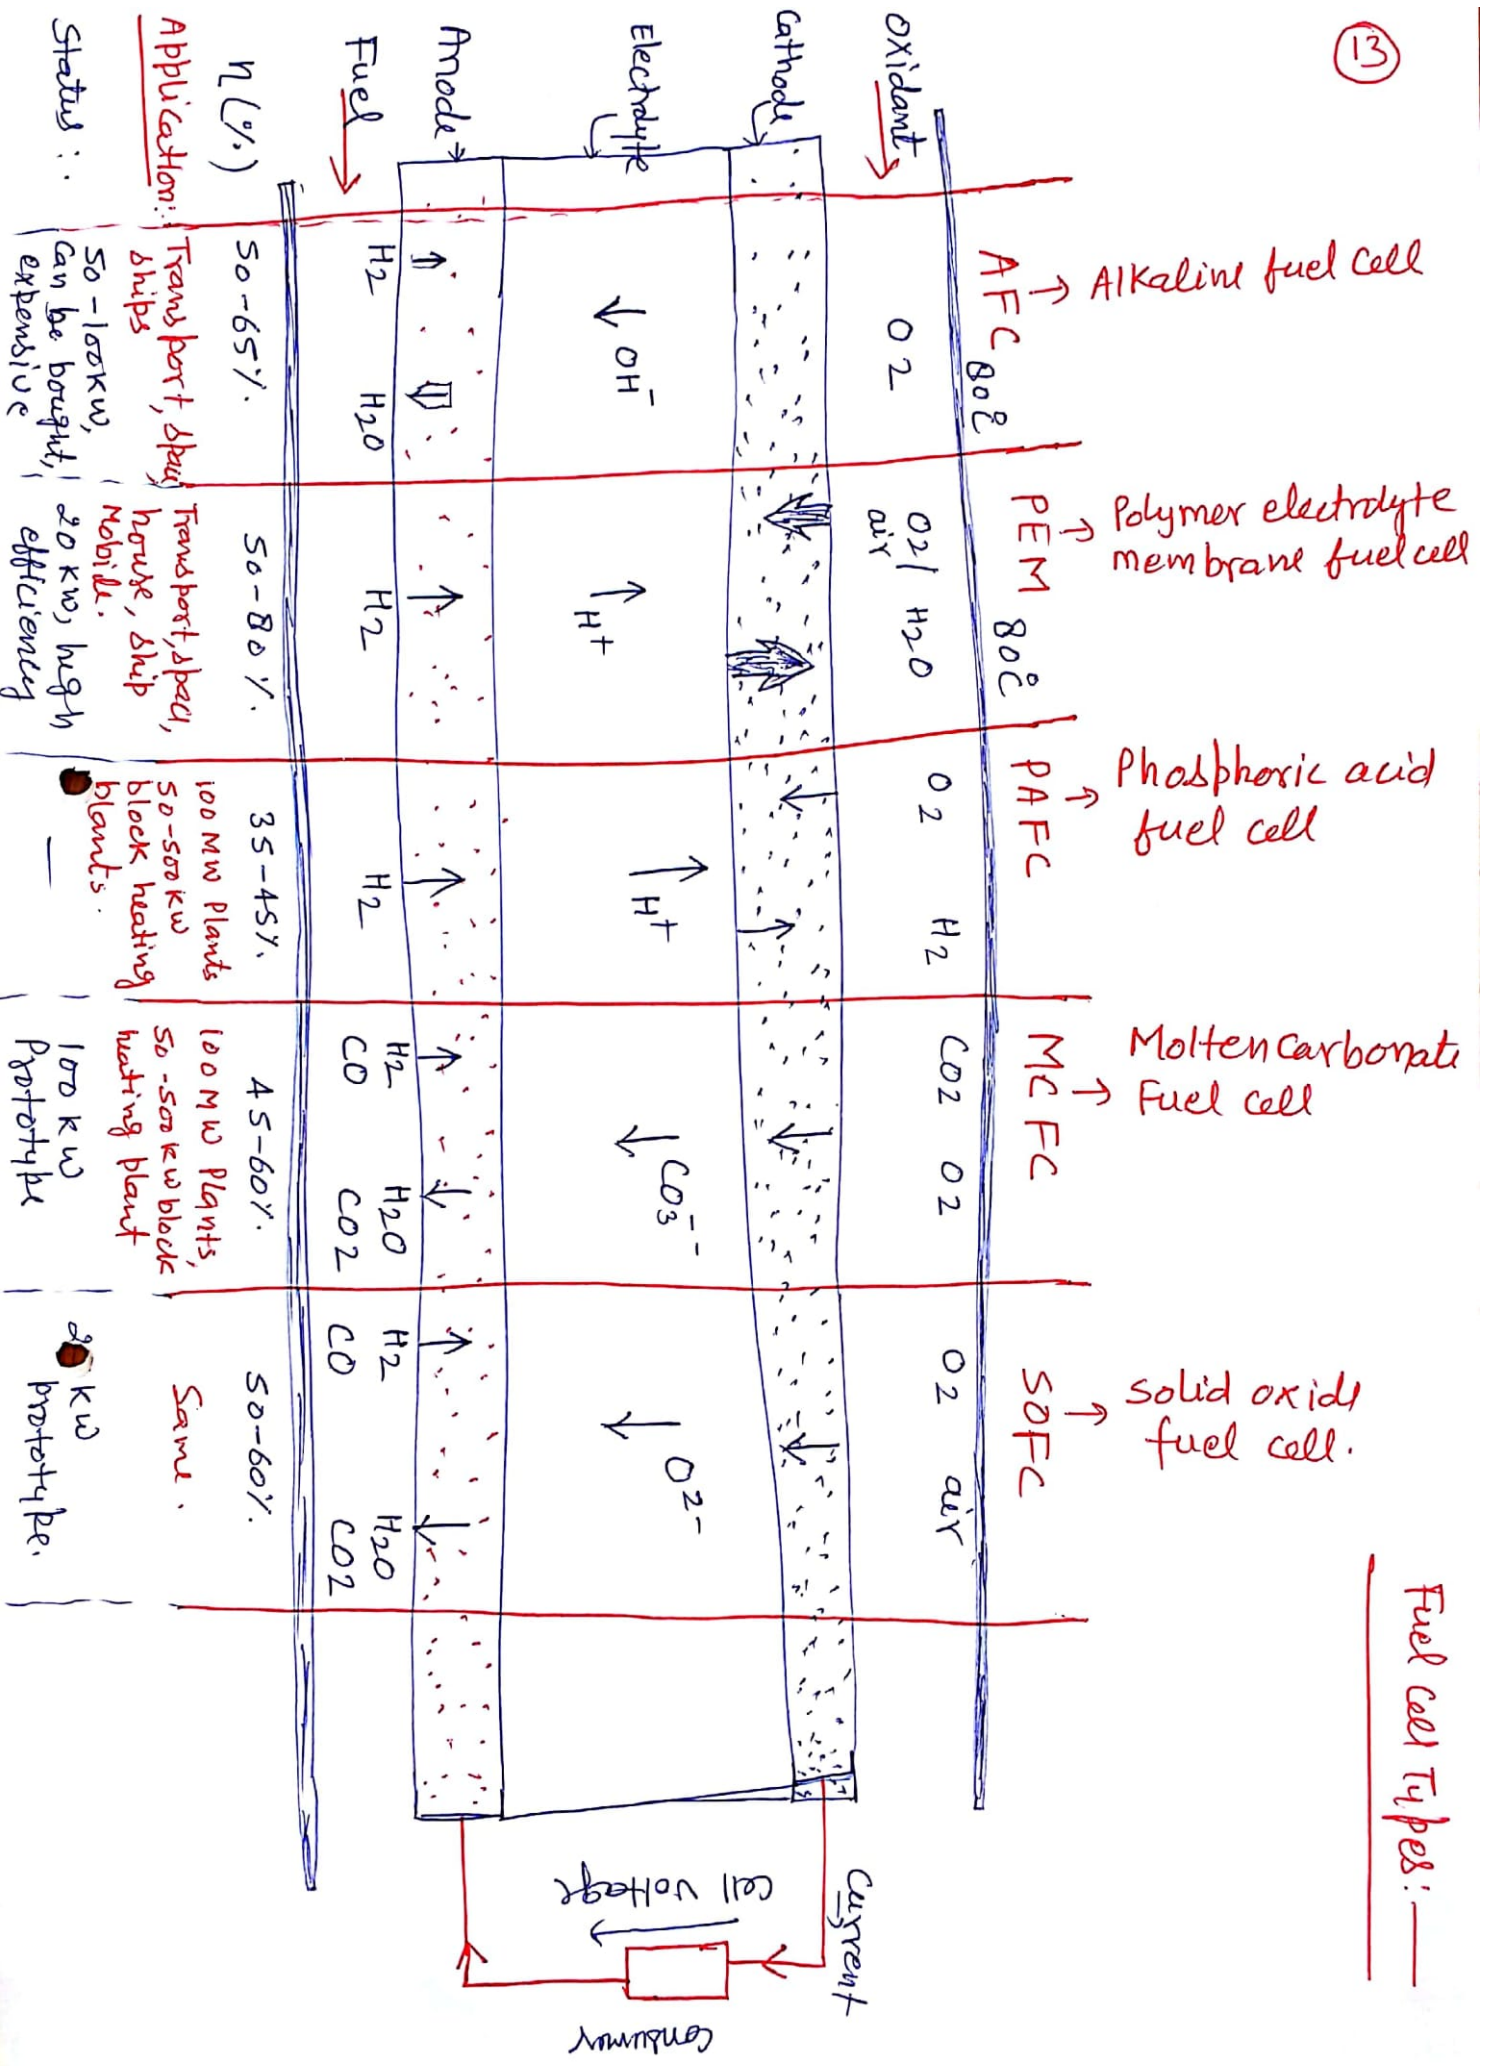 13
Fuel Cell Types:—
AFC → Alkaline fuel cell
80°C
PEM → Polymer electrolyte
membrane fuel cell
80°C
PAFC → Phosphoric acid
fuel cell
MCFC → Molten Carbonate
Fuel cell
SOFC → Solid oxide
fuel cell.
Oxidant
O2
O2/ H2O
air
O2 H2
CO2 O2
O2 air
Cathode
Electrolyte
← OH⁻
→ H+
→ H+
← CO3⁻⁻
← O2-
Anode
Fuel
H2 H2O
H2
H2
H2 H2O
CO CO2
H2 H2O
CO CO2
Current
Cell voltage
Consumer
η (%)
50-65%.
50-80%.
35-45%.
45-60%.
50-60%.
Application:
Transport, spac
ships
Transport, space,
house, ship
Mobile.
100 MW Plants
50-500KW
block heating
plants.
100 MW Plants,
50-500KW block
heating plant
Same.
Status:
50-100KW,
Can be bought,
expensive
20 KW, high
efficiency
—
100 KW
Prototype
KW
prototype.